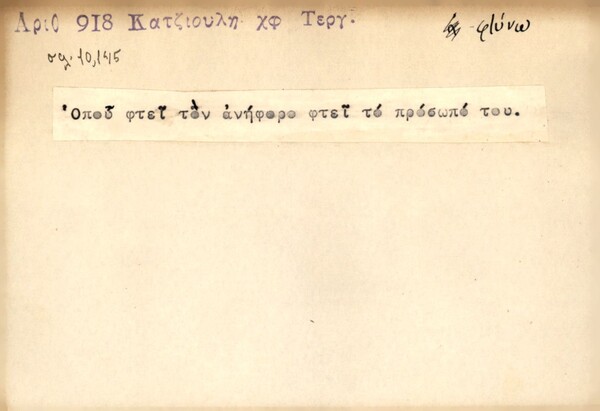 Αριθ 918 Κατζιουλη χφ Τεργ.
φτύνω
σελ. 10,145
Ὁποῦ φτεῖ τὸν ἀνήφορο φτεῖ τό πρόσωπό του.